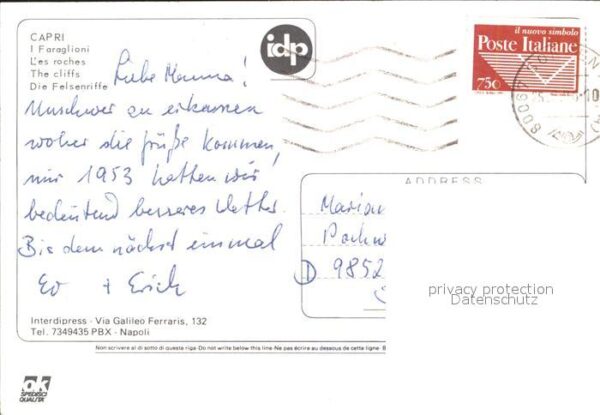 CAPRI
I Faraglioni
L'es roches
The cliffs
Die Felsenriffe
idp
il nuovo simbolo
Poste Italiane
750
Liebe Mamma!
Unschwer zu erkennen
woher die Grüße kommen,
nur 1953 hatten wir
bedeutend besseres Wetter.
Bis dem nächst einmal
Ev + Erich
ADDRESS
Marian
D 9852
privacy protection
Datenschutz
Interdipress - Via Galileo Ferraris, 132
Tel. 7349435 PBX - Napoli
Non scrivere al di sotto di questa riga - Do not write below this line - Ne pas écrire au dessous de cette ligne
ok
SPEDISCI
QUALITA'